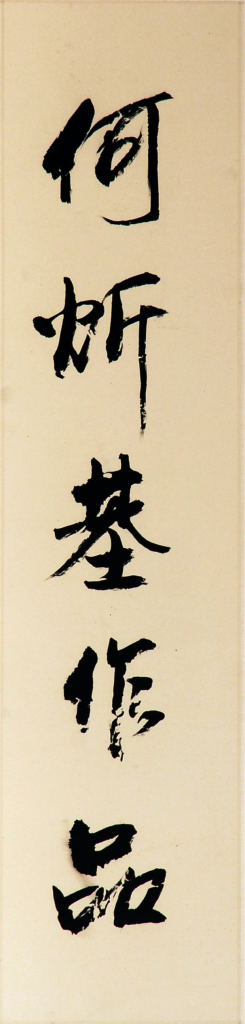 何炘基作品